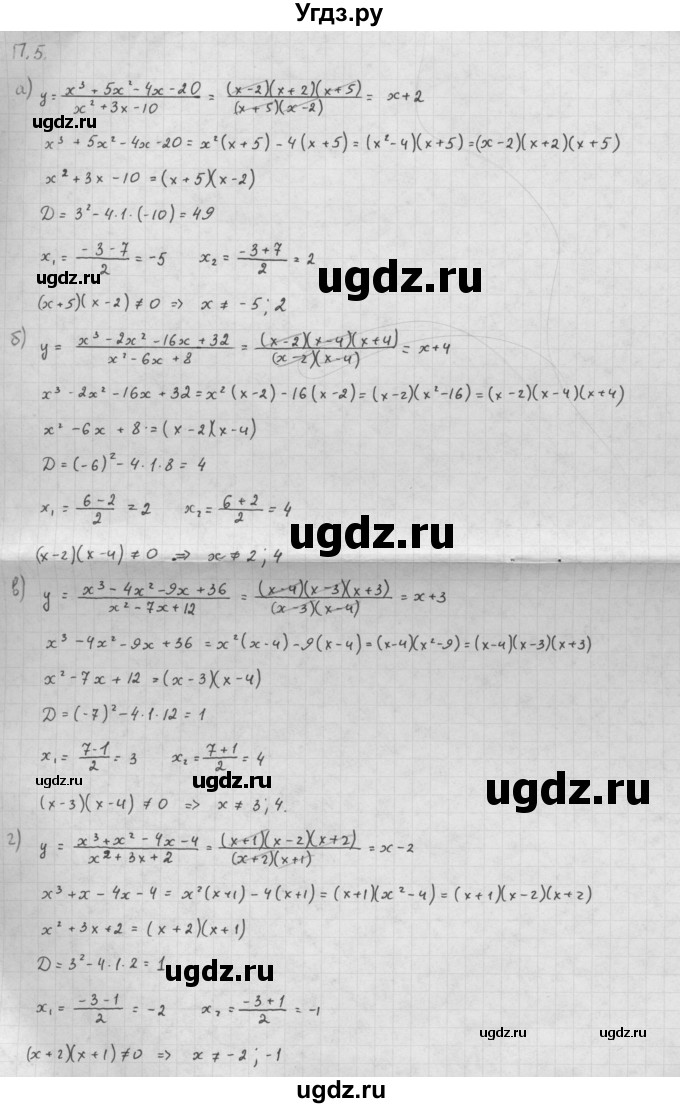 Угдз.ру
П.5.
а) y = (x³ + 5x² - 4x - 20)/(x² + 3x - 10) = ((x-2)(x+2)(x+5))/((x+5)(x-2)) = x+2
ugdz.ru
x³ + 5x² - 4x - 20 = x²(x+5) - 4(x+5) = (x²-4)(x+5) = (x-2)(x+2)(x+5)
x² + 3x - 10 = (x+5)(x-2)
D = 3² - 4·1·(-10) = 49
x₁ = (-3-7)/2 = -5 x₂ = (-3+7)/2 = 2
ugdz.ru ugdz.ru
(x+5)(x-2) ≠ 0 => x ≠ -5; 2
б) y = (x³ - 2x² - 16x + 32)/(x² - 6x + 8) = ((x-2)(x-4)(x+4))/((x-2)(x-4)) = x+4
x³ - 2x² - 16x + 32 = x²(x-2) - 16(x-2) = (x-2)(x²-16) = (x-2)(x-4)(x+4)
x² - 6x + 8 = (x-2)(x-4)
D = (-6)² - 4·1·8 = 4
x₁ = (6-2)/2 = 2 x₂ = (6+2)/2 = 4
ugdz.ru
(x-2)(x-4) ≠ 0 => x ≠ 2; 4
в) y = (x³ - 4x² - 9x + 36)/(x² - 7x + 12) = ((x-4)(x-3)(x+3))/((x-3)(x-4)) = x+3
x³ - 4x² - 9x + 36 = x²(x-4) - 9(x-4) = (x-4)(x²-9) = (x-4)(x-3)(x+3)
x² - 7x + 12 = (x-3)(x-4)
D = (-7)² - 4·1·12 = 1
x₁ = (7-1)/2 = 3 x₂ = (7+1)/2 = 4
ugdz.ru ugdz.ru ugdz.ru
(x-3)(x-4) ≠ 0 => x ≠ 3; 4.
г) y = (x³ + x² - 4x - 4)/(x² + 3x + 2) = ((x+1)(x-2)(x+2))/((x+2)(x+1)) = x-2
x³ + x - 4x - 4 = x²(x+1) - 4(x+1) = (x+1)(x²-4) = (x+1)(x-2)(x+2)
x² + 3x + 2 = (x+2)(x+1)
D = 3² - 4·1·2 = 1
ugdz.ru
x₁ = (-3-1)/2 = -2 x₂ = (-3+1)/2 = -1
ugdz.ru ugdz.ru
(x+2)(x+1) ≠ 0 => x ≠ -2; -1
ugdz.ru